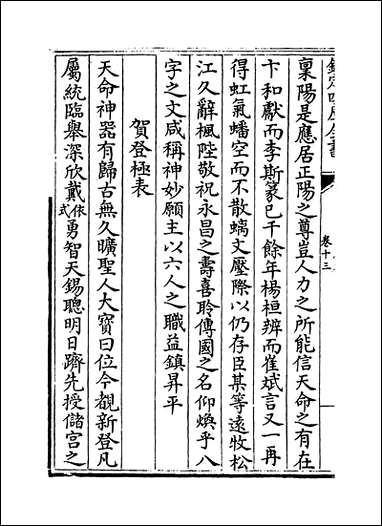 欽定四庫全書
卷十三
稟陽是應居正陽之尊豈人力之所能信天命之有在
卞和獻而李斯篆已千餘年楊桓辨而崔斌言又一再
得虹氣蟠空而不散螭文壓際以仍存臣某等遠牧松
江久辭楓陛敬祝永昌之壽喜聆傳國之名仰煥乎八
字之文咸稱神妙願主以六人之職益鎮昇平
賀登極表
天命神器有歸古無久曠聖人大寶曰位今覩新登凡
屬統臨舉深欣戴依式勇智天錫聰明日躋先授儲宮之